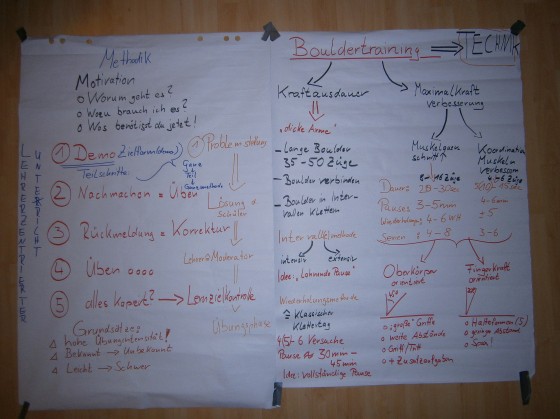 Methodik
Motivation
o Worum geht es?
o Wozu brauch ich es?
o Was benötigst du jetzt!
LEHRERZENTRIERTER
UNTERRICHT
① Demo Zielformulierung
Teilschritte:
Ganz
Teil
Ganzmethode
② Nachmachen = Üben
③ Rückmeldung = Korrektur
④ Üben oooo
⑤ alles kapiert? → Lernzielkontrolle
① Problemstellung
Lösung =
Schüler
Lehrer = Moderator
Übungsphase
Grundsätze:
△ hohe Übungsintensität!
△ Bekannt → Unbekannt
△ Leicht → Schwer
Bouldertraining ⇒ TECHNIK
Kraftausdauer
"dicke Arme"
- Lange Boulder
35-50 Züge
- Boulder verbinden
- Boulder in Inter-
vallen Klettern
Intervallmethode
intensiv
extensiv
Idee: "Lohnende Pause"
Wiederholungsmethode
≙ Klassischer
Klettertag
4,5-6 Versuche
Pause Ø 30 min -
45 min
Idee: vollständige Pause
Maximalkraft
verbesserung
Muskelquer
schnitt ↑
8-16 Züge
Koordination
Muskeln
verbessern
4-6 Züge
Dauer:
Pause: 3-5 min
4-6 min
Wiederholungen: 4-6 WH
±5
Serien: 4-8
3-6
Oberkörper
orientiert
o "große" Griffe
o weite Abstände
o Griff/Tritt
o + Zusatzaufgaben
Fingerkraft
orientiert
o Halteformen (5)
o geringe Abstände